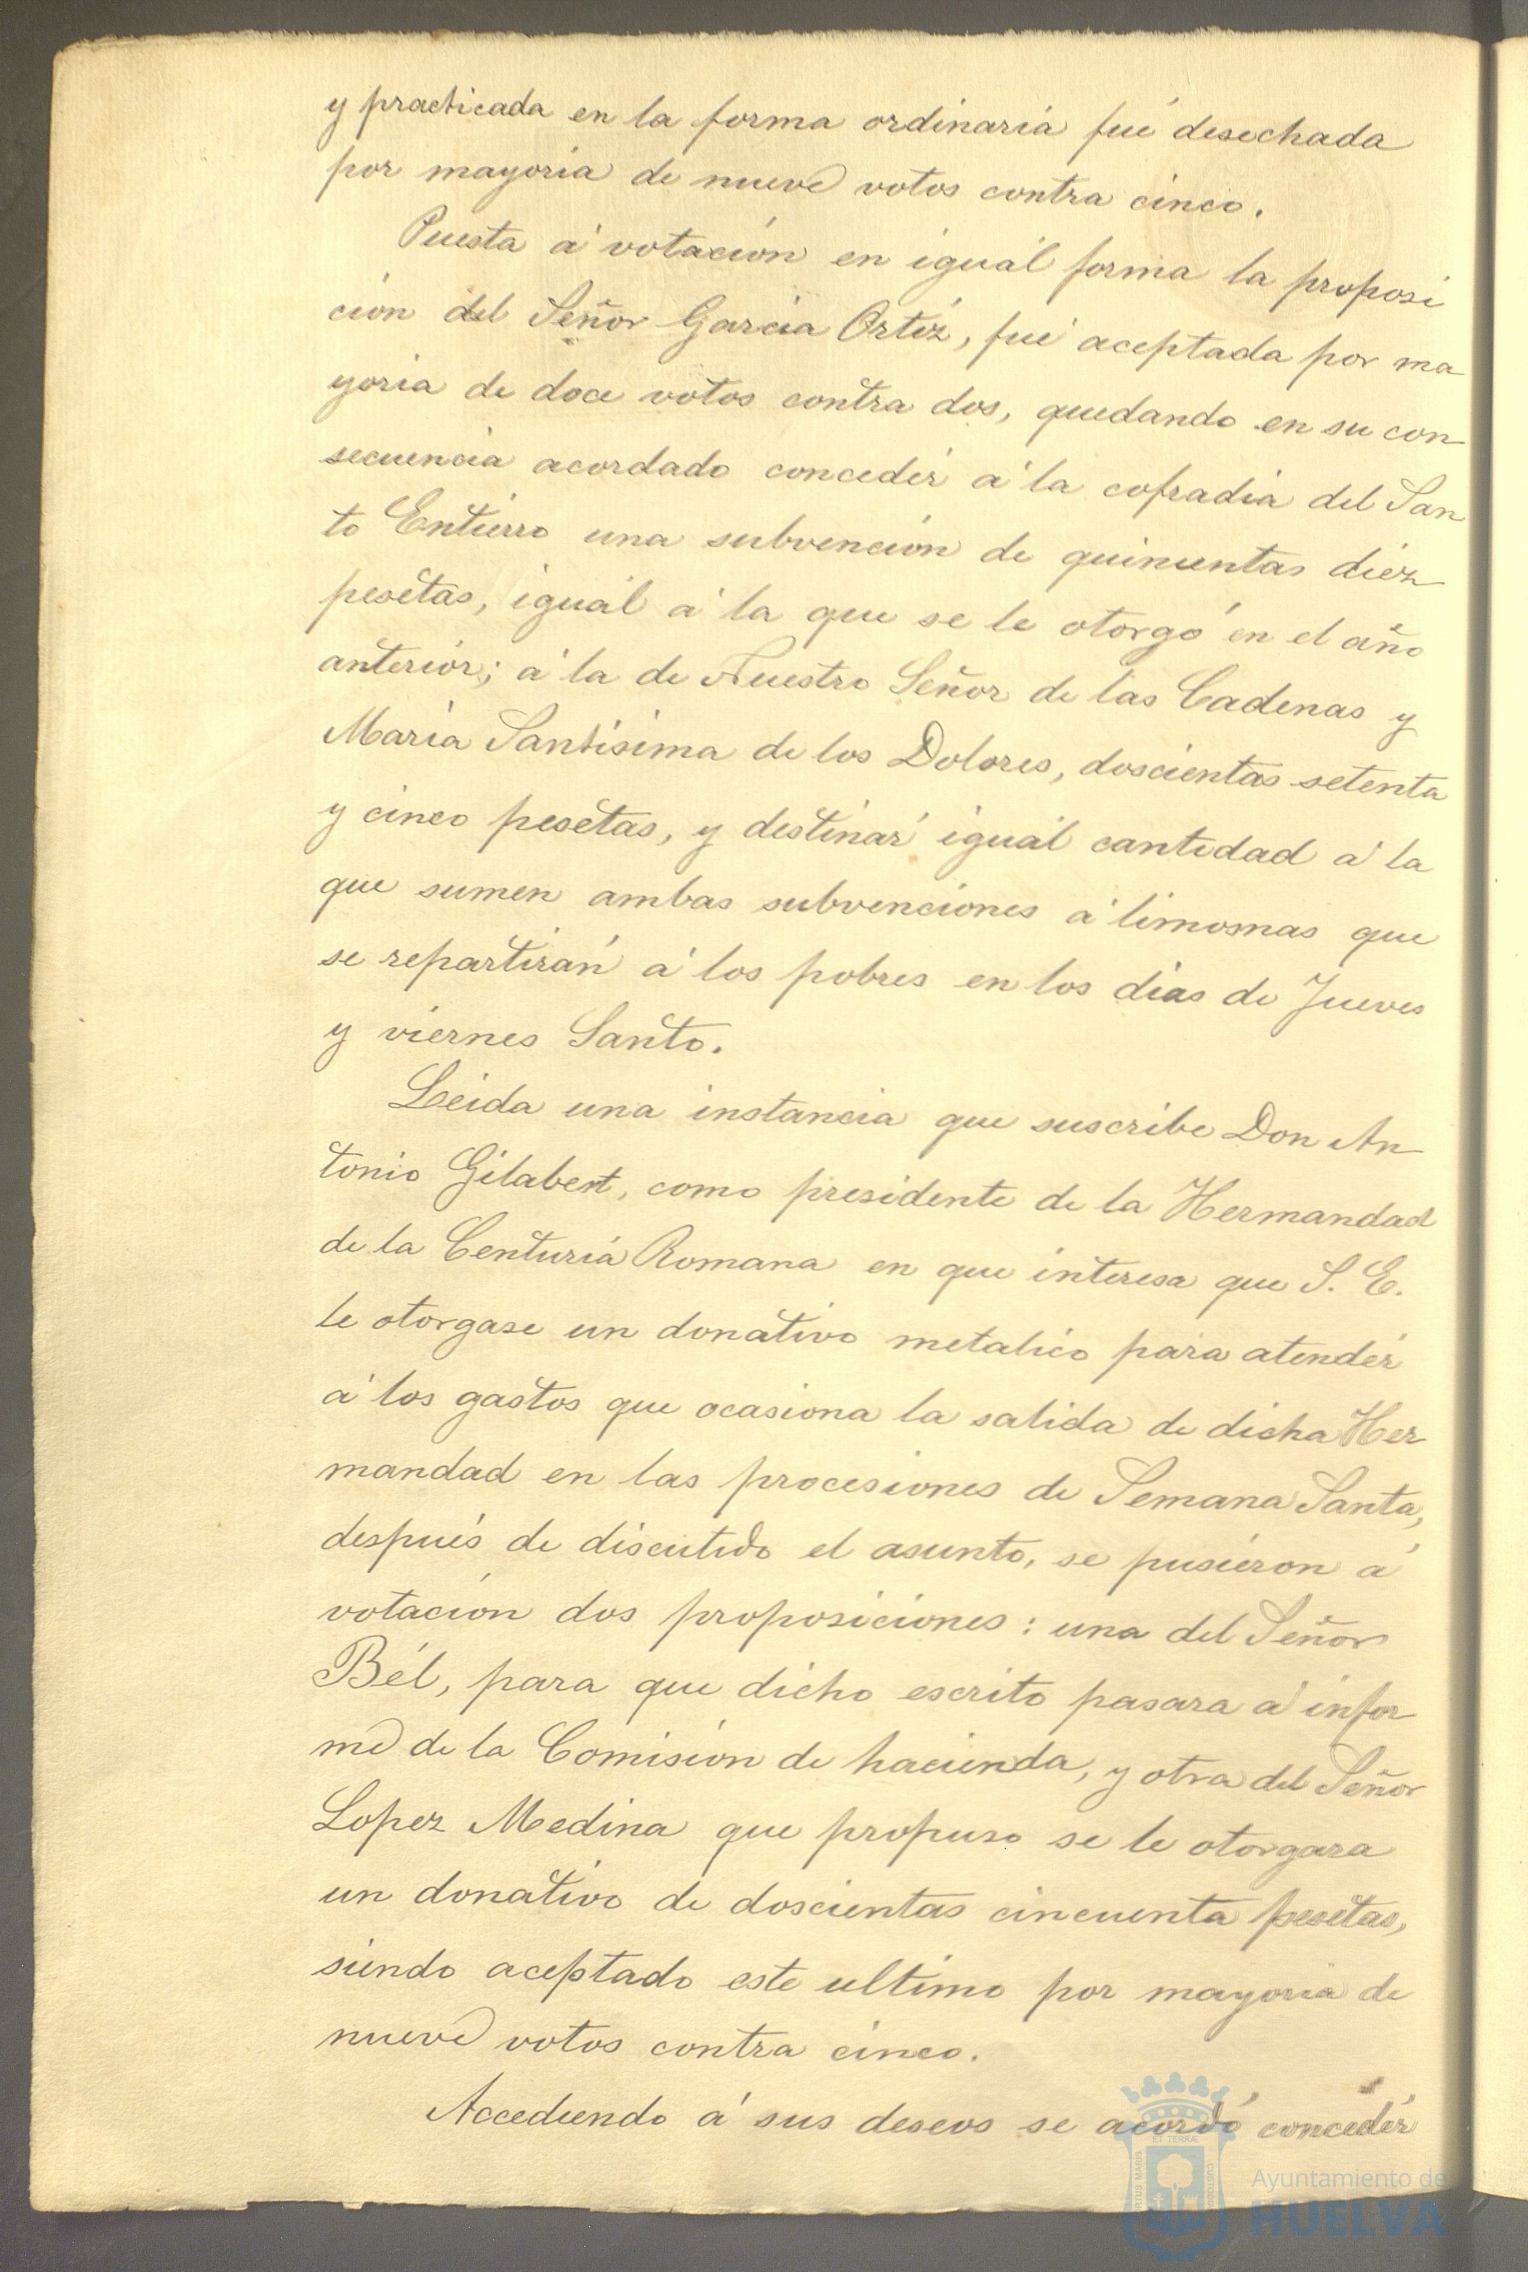 y practicada en la forma ordinaria fué desechada
por mayoria de nueve votos contra cinco.
Puesta á votación en igual forma la proposi
ción del Señor Garcia Ortiz, fué aceptada por ma
yoria de doce votos contra dos, quedando en su con
secuencia acordado conceder á la cofradia del San
to Entierro una subvención de quinientas diez
pesetas, igual á la que se le otorgó en el año
anterior; á la de Nuestro Señor de las Cadenas y
Maria Santisima de los Dolores, doscientas setenta
y cinco pesetas, y destinar igual cantidad á la
que sumen ambas subvenciones á limosnas que
se repartirán á los pobres en los dias de Jueves
y viernes Santo.
Leida una instancia que suscribe Don An
tonio Gilabert, como presidente de la Hermandad
de la Centuria Romana en que interesa que S. E.
le otorgase un donativo metalico para atender
á los gastos que ocasiona la salida de dicha Her
mandad en las procesiones de Semana Santa,
después de discutido el asunto, se pusieron á
votación dos proposiciones: una del Señor
Bél, para que dicho escrito pasara á infor
me de la Comisión de hacienda, y otra del Señor
Lopez Medina que propuso se le otorgara
un donativo de doscientas cincuenta pesetas,
siendo aceptado este ultimo por mayoria de
nueve votos contra cinco.
Accediendo á sus deseos se acordó conceder
ET TERRÆ
PORTUS MARIS
CUSTODIA
Ayuntamiento de
HUELVA